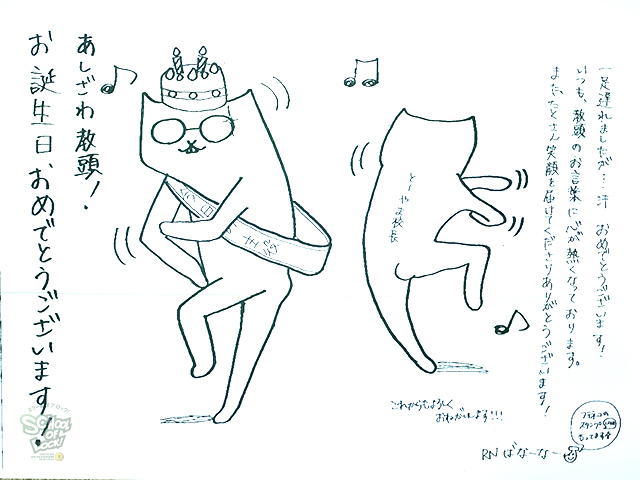 一足遅れましたが…汗 おめでとうございます!
いつも、教頭のお言葉に心が熱くなっております。
また、たくさん笑顔を届けてくださりありがとうございます!
とーやま校長
あしざわ教頭!
お誕生日、おめでとうございます!
これからもよろしく
おねがいします!!!
ブサネコの
スタンプ
もってます
RN ばなーなー
SCHOOL
OF
LOCK!